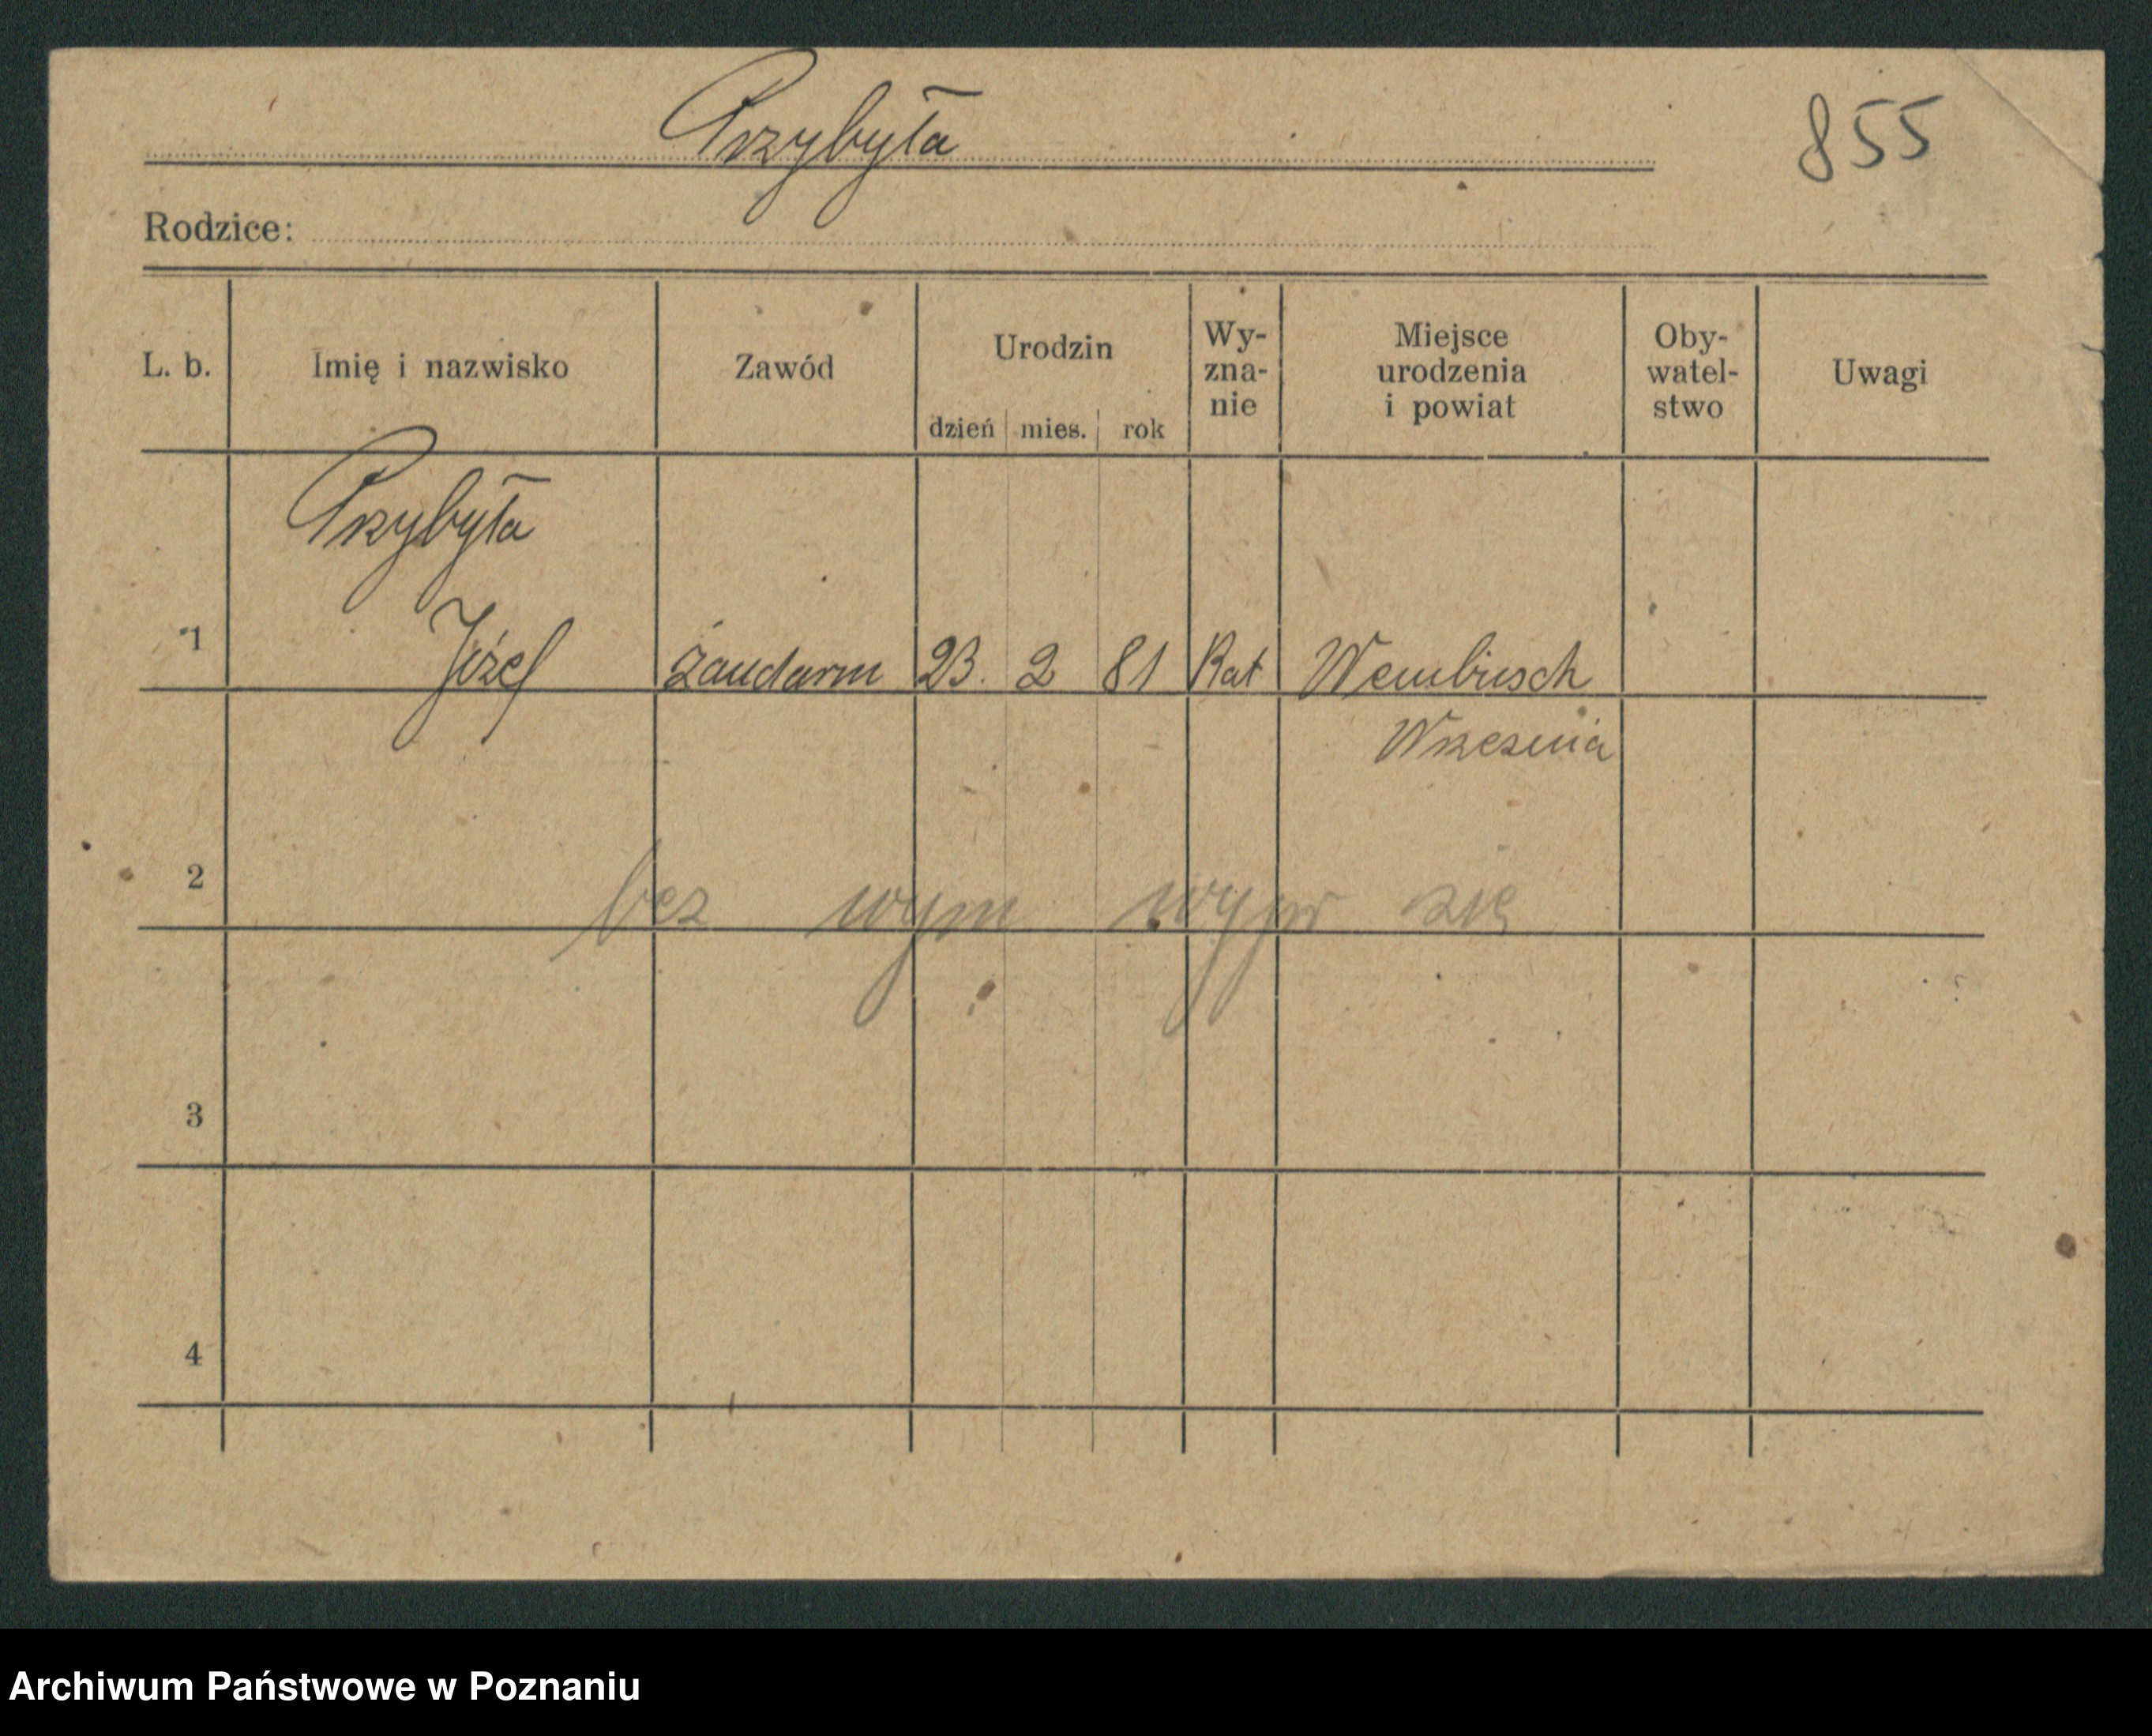 Przybyła
855
Rodzice:
L. b. Imię i nazwisko Zawód Urodzin dzień mies. rok Wy-zna-nie Miejsce urodzenia i powiat Oby-watel-stwo Uwagi
Przybyła
1 Józef żandarm 23. 2 81 Kat
Wrzesnia
2 bez wym wypr się
3
4
Archiwum Państwowe w Poznaniu